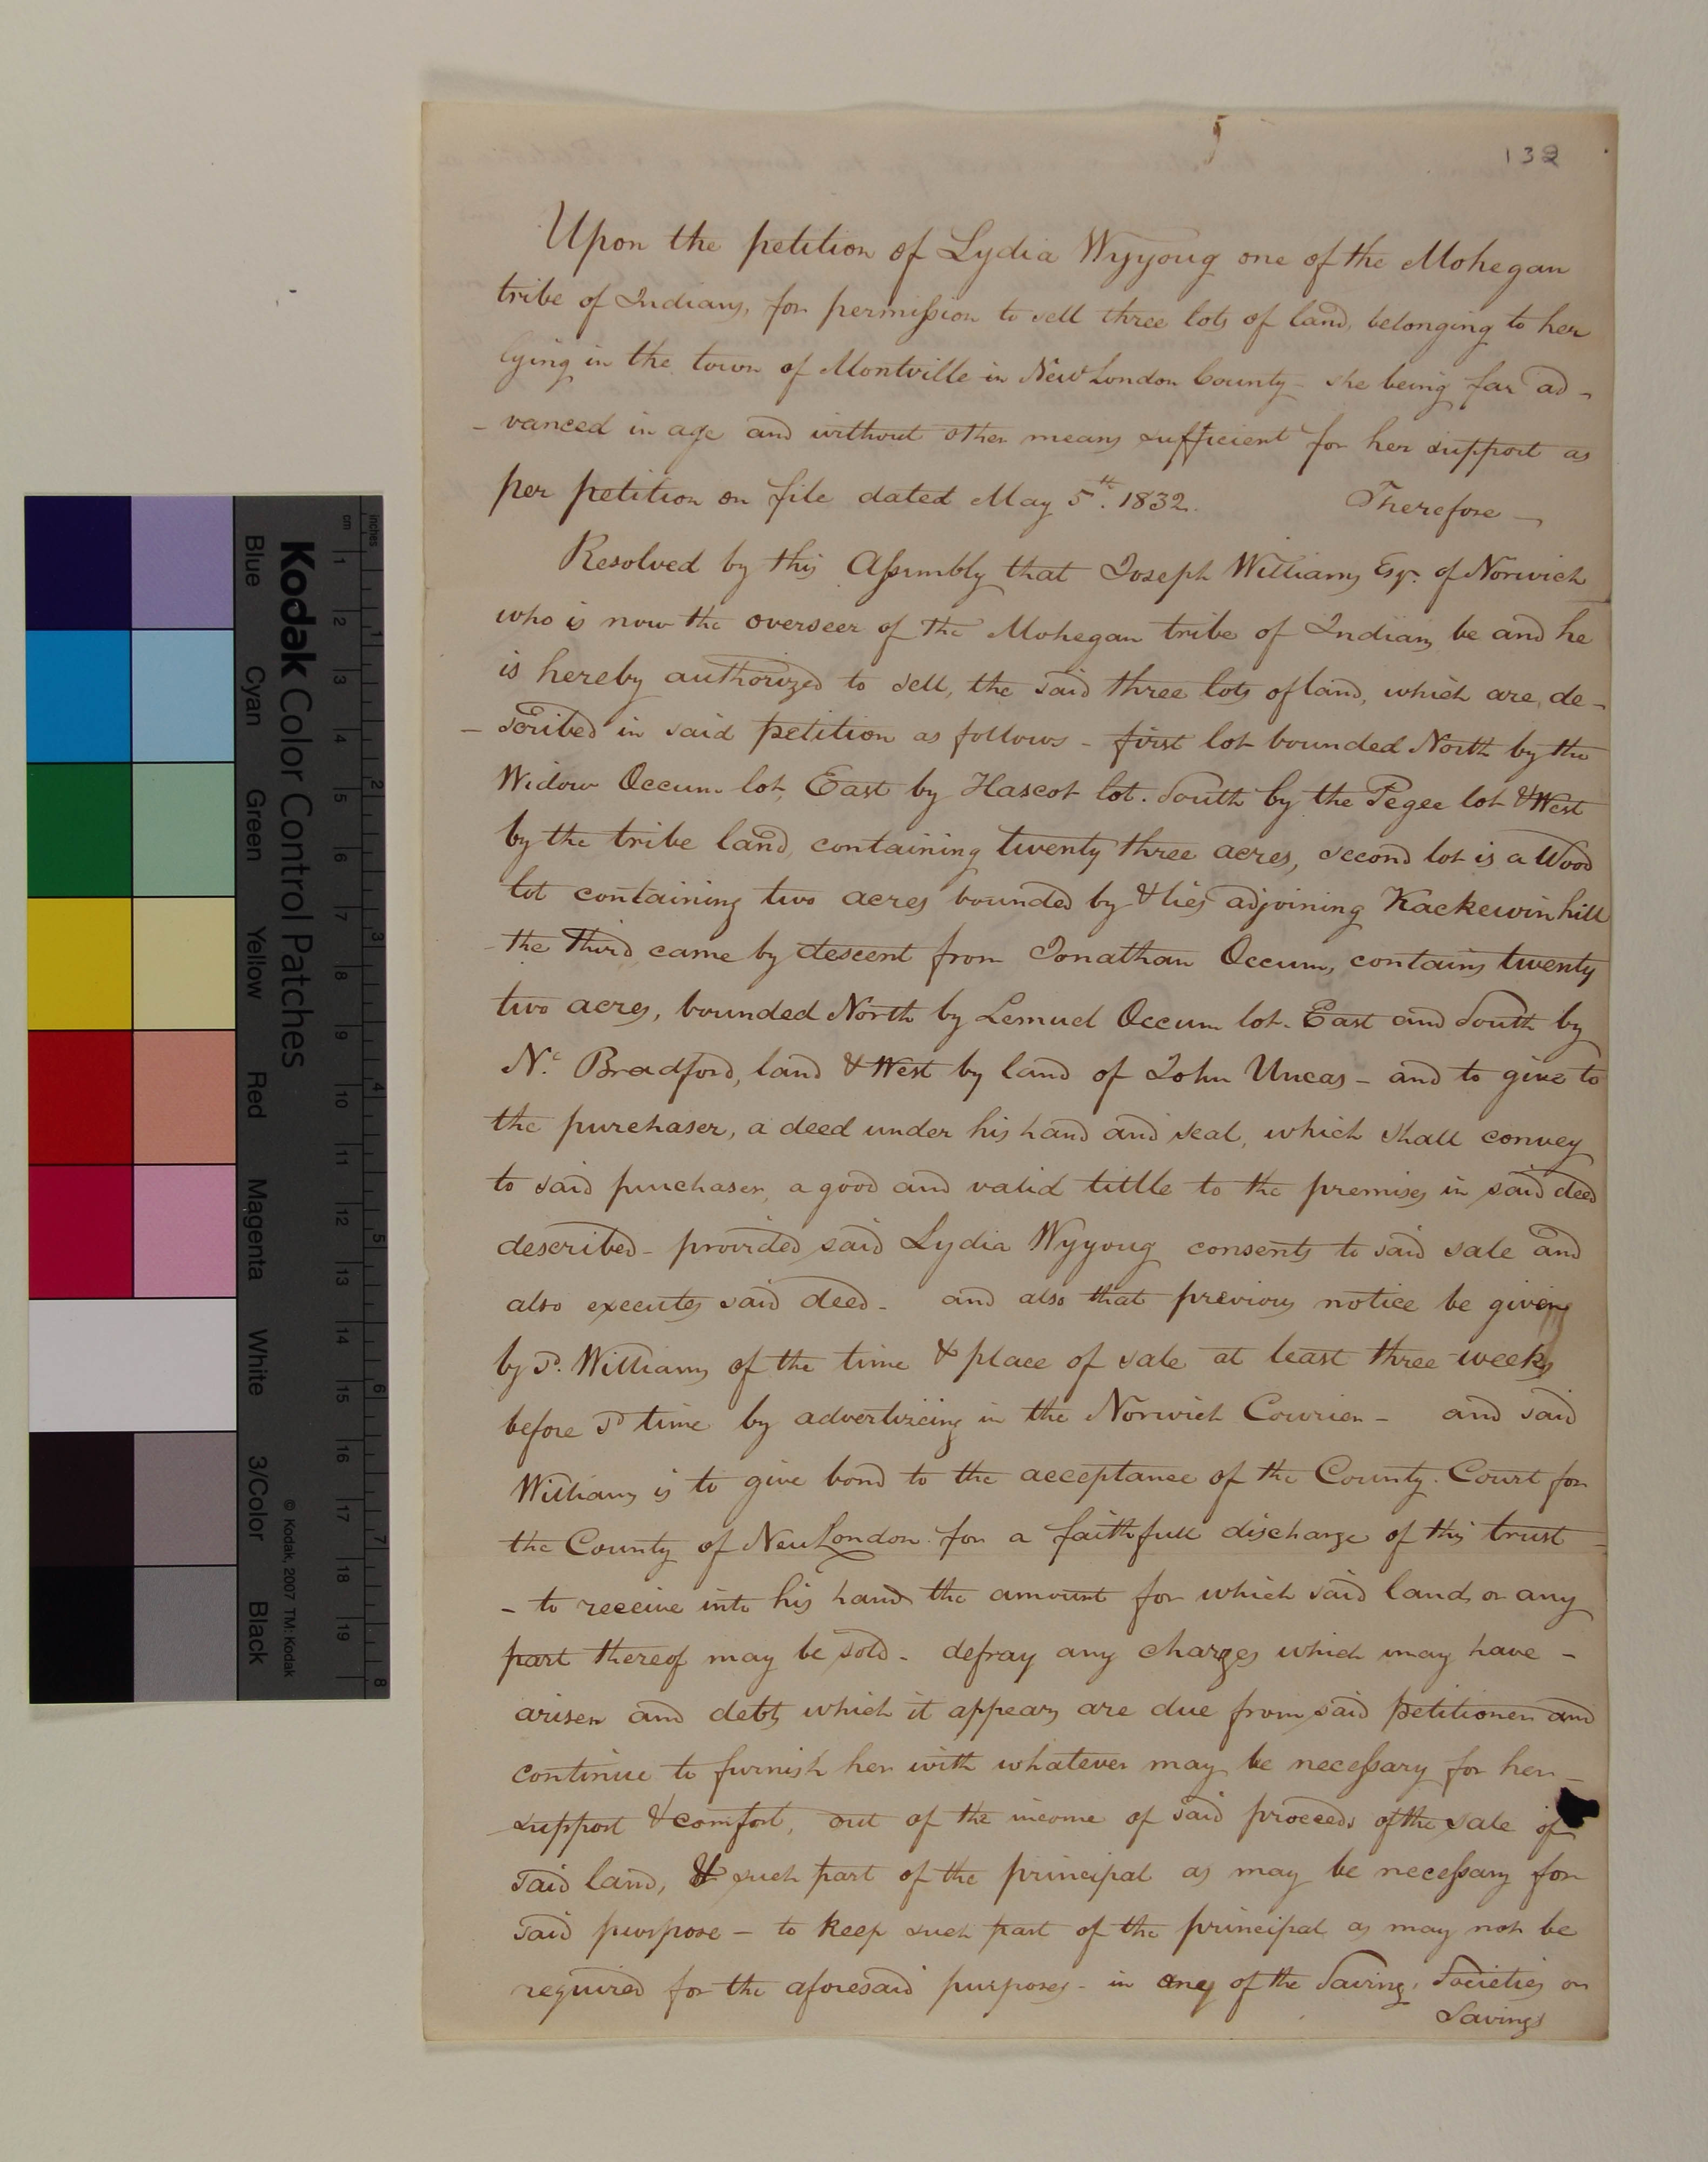 132
Upon the petition of Lydia Wyyoug one of the Mohegan
tribe of Indians, for permission to sell three lots of land, belonging to her
lying in the town of Montville in New London County – she being far ad-
- vanced in age and without other means sufficient for her support as
per petition on file dated May 5th. 1832. Therefore —
Resolved by this Assembly that Joseph Williams Esqr. of Norwich
who is now the overseer of the Mohegan tribe of Indians be and he
is hereby authorized to sell, the said three lots of land, which are, de-
- scribed in said petition as follows - first lot bounded North by the
Widow Occum lot, East by Hascot lot. South by the Pegee lot & West
by the tribe land, containing twenty three acres, second lot is a Wood
lot containing two acres bounded by & lies adjoining Kackewin hill
the third came by descent from Jonathan Occum, contains twenty
two acres, bounded North by Lemuel Occum lot. East and South by
Bradford, land & West by land of John Uncas – and to give to
the purchaser, a deed under his hand and seal, which shall convey
to said purchaser, a good and valid title to the premises in said deed
described - provided said Lydia Wyyoug consents to said sale and
also executes said deed - and also that previous notice be given
by sd. Williams of the time & place of sale at least three weeks
before sd time by advertizeing in the Norwich Courier - and said
Williams is to give bond to the acceptance of the County Court for
the County of New London for a faithfull discharge of this trust -
- to receive into his hands the amount for which said land, or any
part thereof may be sold - defray any charges which may have -
arisen and debts which it appears are due from said petitioner and
continue to furnish her with whatever may be necessary for her -
support & comfort, out of the income of said proceeds of the sale of
said land, & such part of the principal as may be necessary for
said purpose – to keep such part of the principal as may not be
required for the aforesaid purposes - in any of the Savings Societies or
Savings
Kodak Color Control Patches
Blue Cyan Green Yellow Red Magenta White 3/Color Black
© Kodak, 2007 TM: Kodak
cm 1 2 3 4 5 6 7 8 9 10 11 12 13 14 15 16 17 18 19
inches 1 2 3 4 5 6 7 8